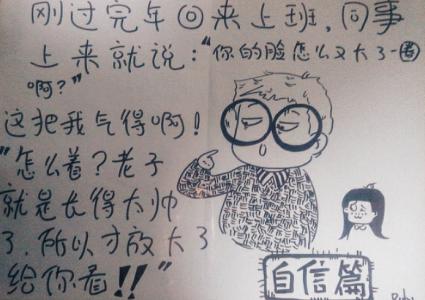 刚过完年回来上班，同事
上来就说："你的脸怎么又大了一圈
啊？"
这把我气得啊！
"怎么着？老子
就是长得太帅
了，所以才放大了
给你看!!"
自信篇